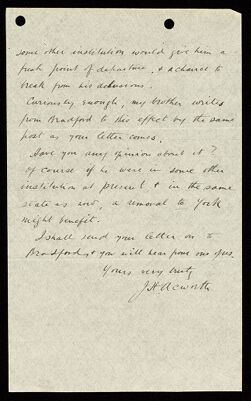 some other institution would give him a
fresh point of departure, & a chance to
break from his delusions.
Curiously enough, my brother writes
from Bradford to this effect by the same
post as your letter comes.
Have you any opinion about it?
Of course if he were in some other
institution at present & in the same
state as now, a removal to York
might benefit.
I shall send your letter on to
Bradford, & you will hear from one of us.
Yours very truly
J H Acworth